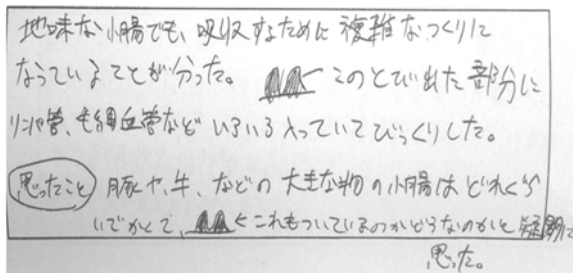 地味な小腸でも、吸収するために複雑なつくりに
なっていることが分った。 ← このとび出た部分に
リンパ管、毛細血管など いろいろ入っていてびっくりした。
思ったこと 豚や、牛、などの大きな物の小腸はどれくら
いでかくて、 ← これもついているのかどうなのかと疑問に
思った。